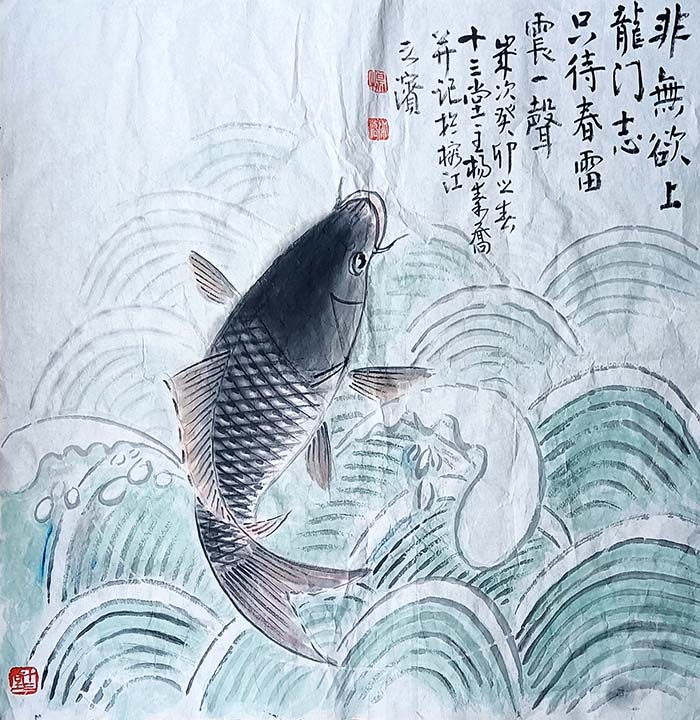 非無欲上
龍门志
只待春雷
震一聲
岁次癸卯之春
十三堂主杨秦喬
并记於榕江
之濱